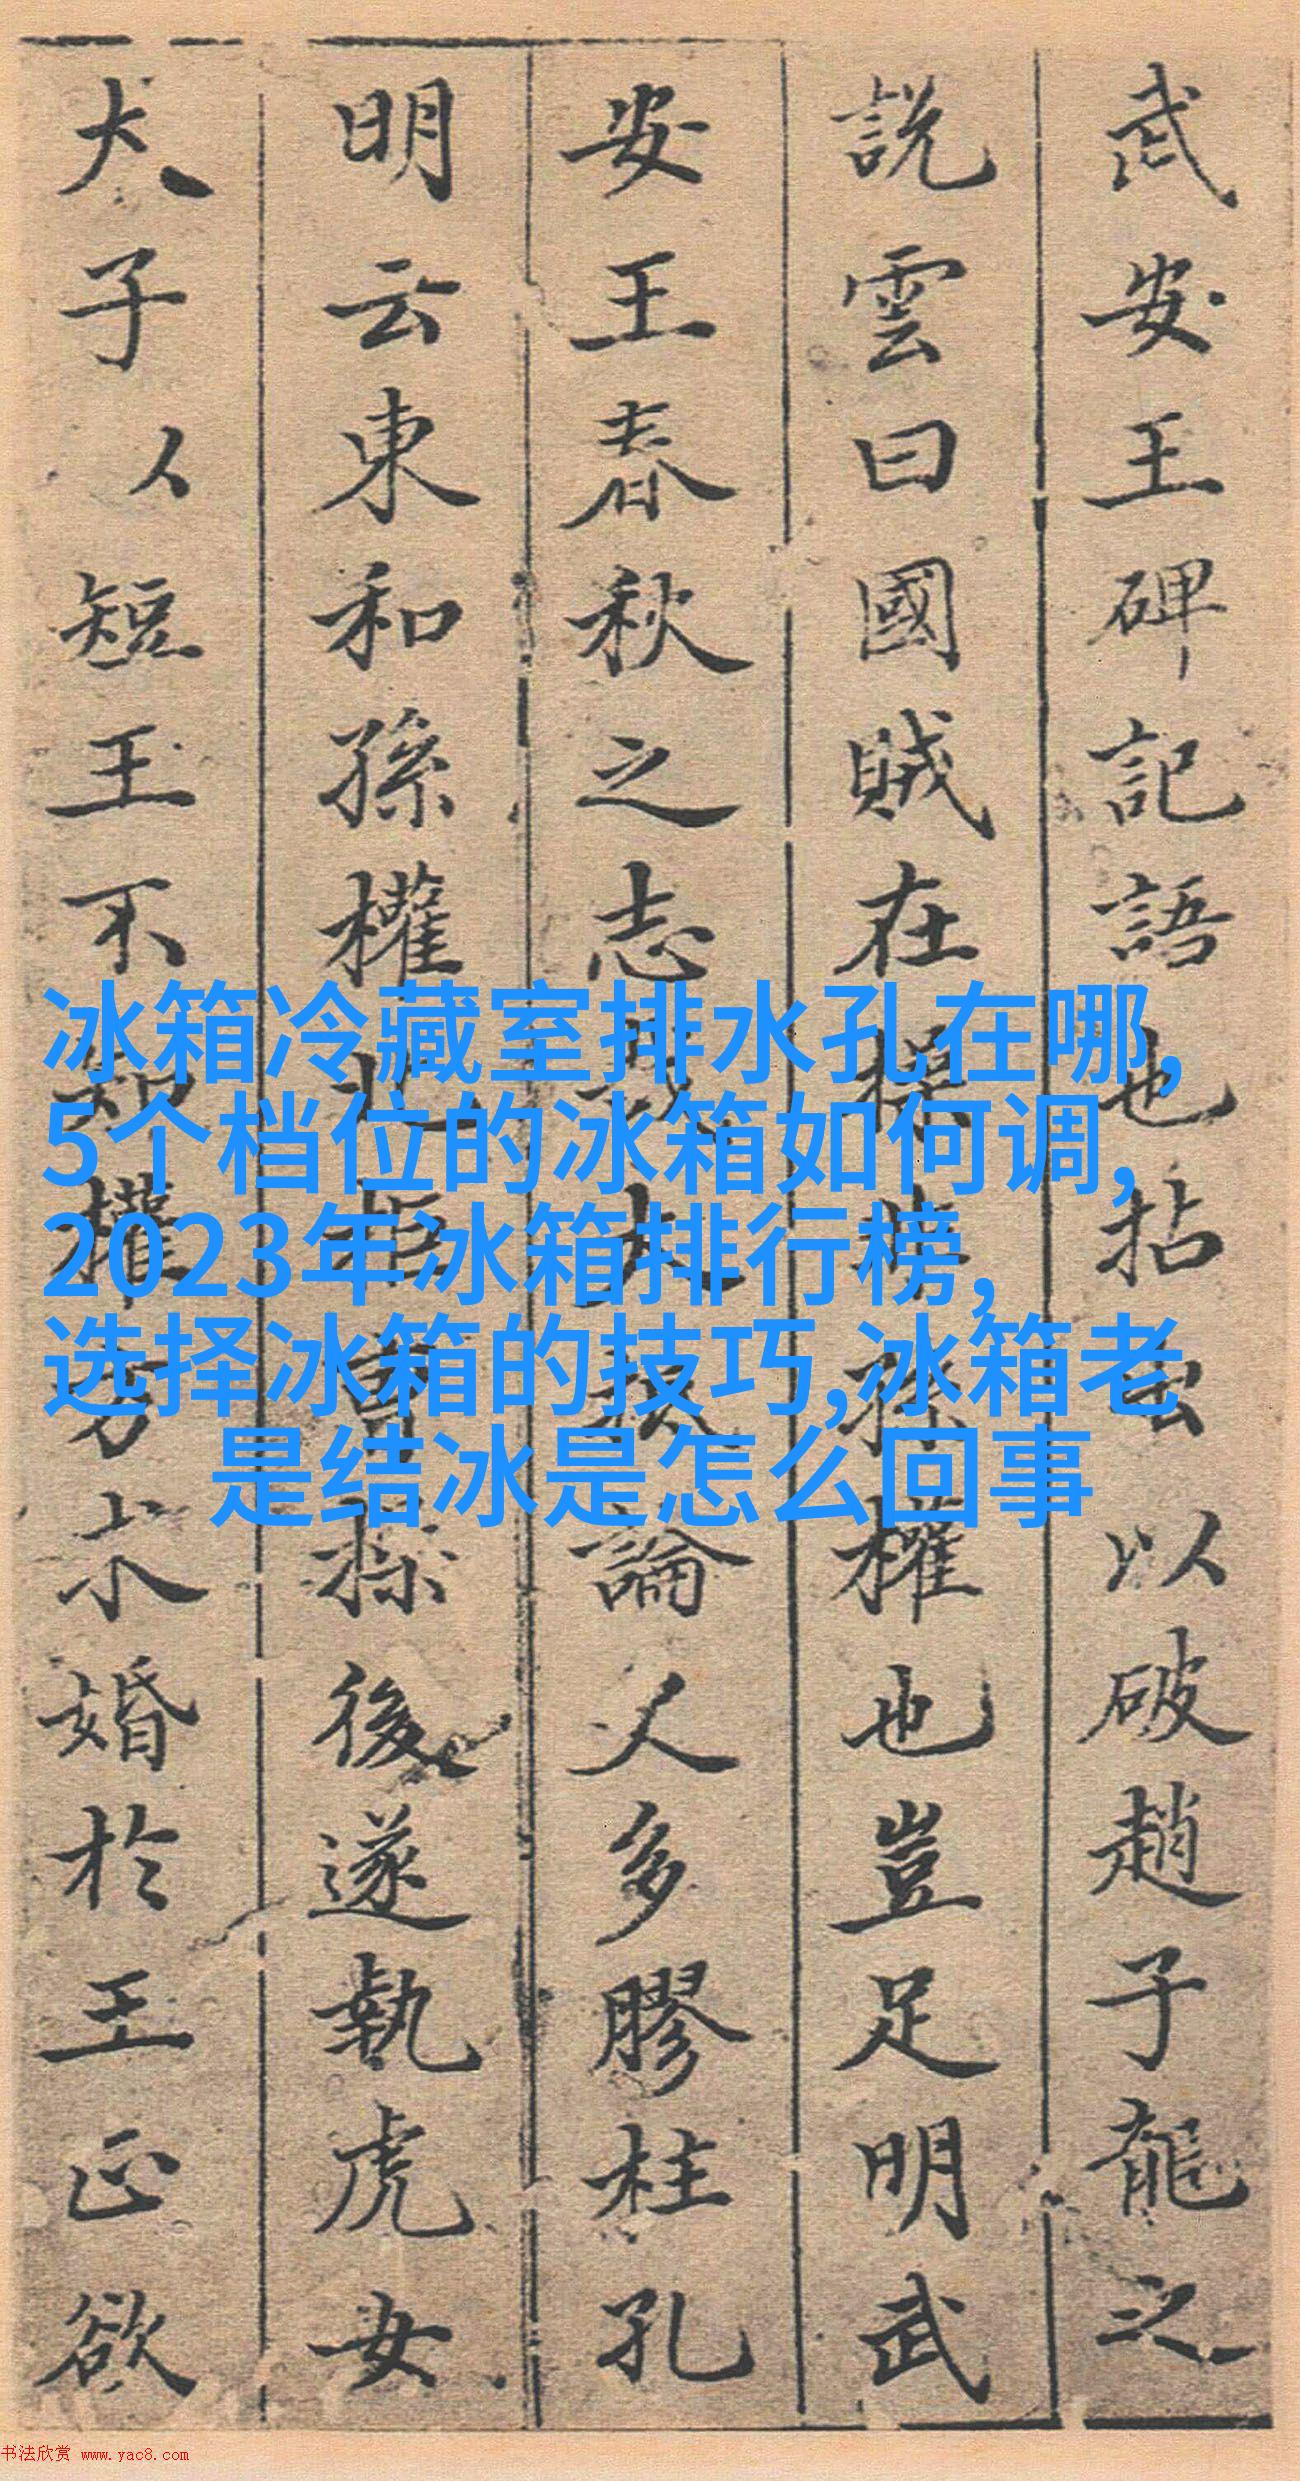 武安王碑記語也拈出以破趙子龍之
說雲曰國賊在操孫權也豈足明武
安王春秋之志哉大抵論人多膠柱孔
明云東和孫權北拒曹操後遂執虎女
犬子以短王不知權方求婚於王正欲
冰箱冷藏室排水孔在哪,
5个档位的冰箱如何调,
2023年冰箱排行榜,
选择冰箱的技巧,冰箱老
是结冰是怎么回事
书法欣赏 www.yac8.com